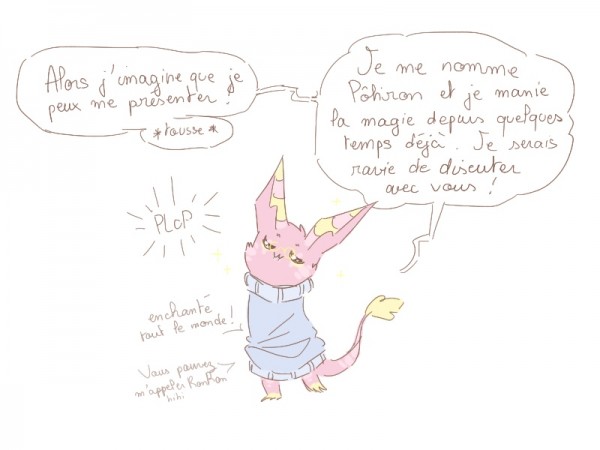 Alors j'imagine que je
peux me présenter !
*tousse*
Je me nomme
Pôhiron et je manie
la magie depuis quelques
temps déjà. Je serais
ravie de discuter
avec vous !
PLOP
enchanté
tout le monde !
Vous pouvez
m'appeler RonRon
hihi